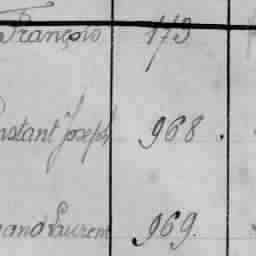 François 173
Constant Joseph 968.
and Laurent 969.